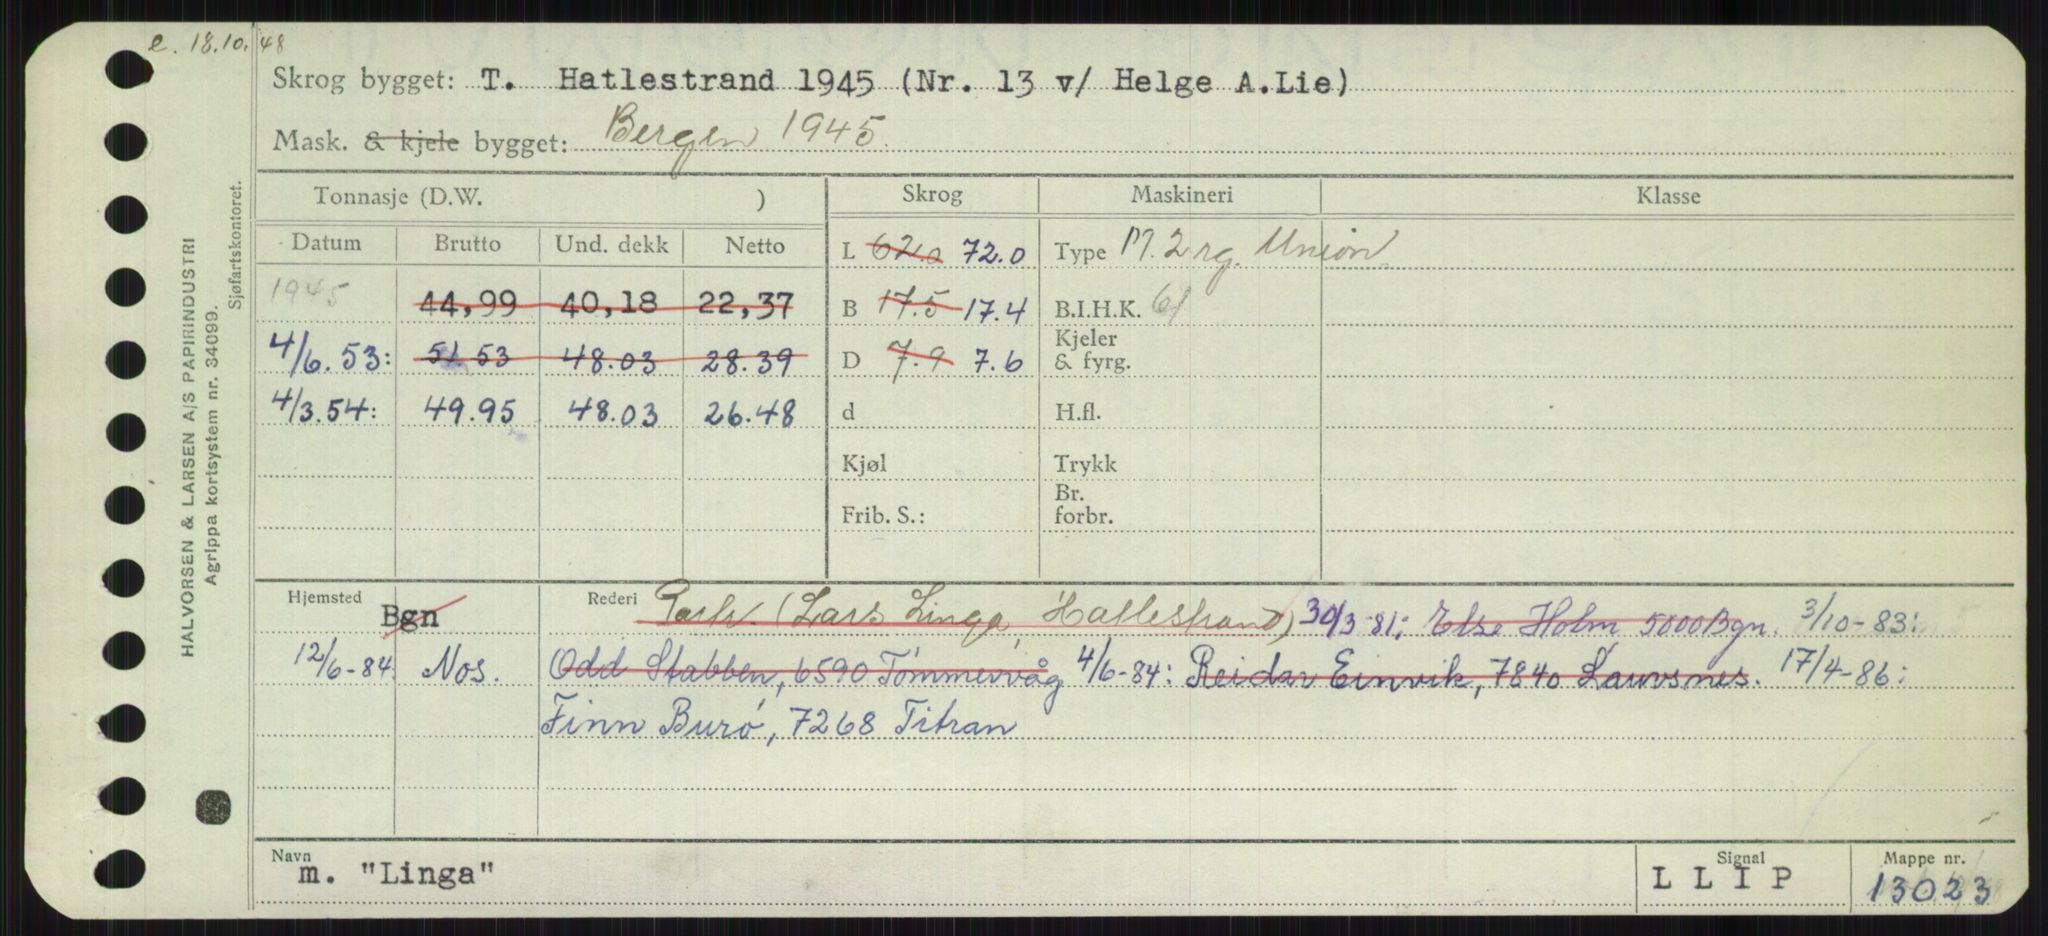 e. 18.10.48
Skrog bygget: T. Hatlestrand 1945 (Nr. 13 v/ Helge A.Lie)
Mask. & kjele bygget: Bergen 1945.
Tonnasje (D.W. )
Skrog
Maskineri
Klasse
Datum Brutto Und. dekk Netto
L 62.0 72.0
Type M. 2 rg. Union
1945 44,99 40,18 22,37
B 17.5 17.4
B.I.H.K. 61
4/6.53: 51 53 48.03 28.39
D 7.9 7.6
Kjeler
& fyrg.
4/3.54: 49.95 48.03 26.48
d
H.fl.
Kjøl
Trykk
Frib. S.:
Br.
forbr.
Hjemsted Bgn
Rederi Partr. (Lars Linga, Hatlestrand) 30/3-81: Else Holm 5000 Bgn. 3/10-83:
12/6-84: Nos. Odd Stabben, 6590 Tömmervåg 4/6-84: Reidar Einvik, 7840 Lauvsnes. 17/4-86:
Finn Burö, 7268 Titran
Navn
m. "Linga"
Signal
L L I P
Mappe nr.
13023
HALVORSEN & LARSEN A/S PAPIRINDUSTRI
Agrippa kortsystem nr. 34099.
Sjøfartskontoret.